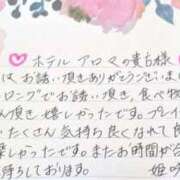 ♡ホテル アロマの貴方様♡
はお誘い頂きありがとうございま
ロングでお誘い頂き、食べ物
ん頂き嬉しかったです。プレイ
たくさん気持ち良くなれて
楽しかったです。またお時間が合
待ちしております。 姫咲